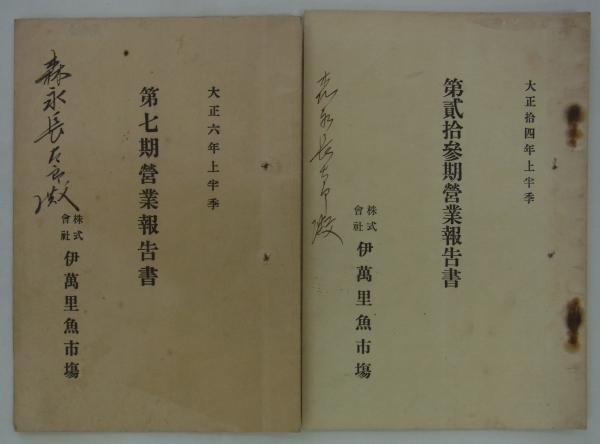 大正六年上半季
第七期營業報告書
株式會社 伊萬里魚市塲
森永長太市殿
大正拾四年上半季
第貳拾參期營業報告書
株式會社 伊萬里魚市塲